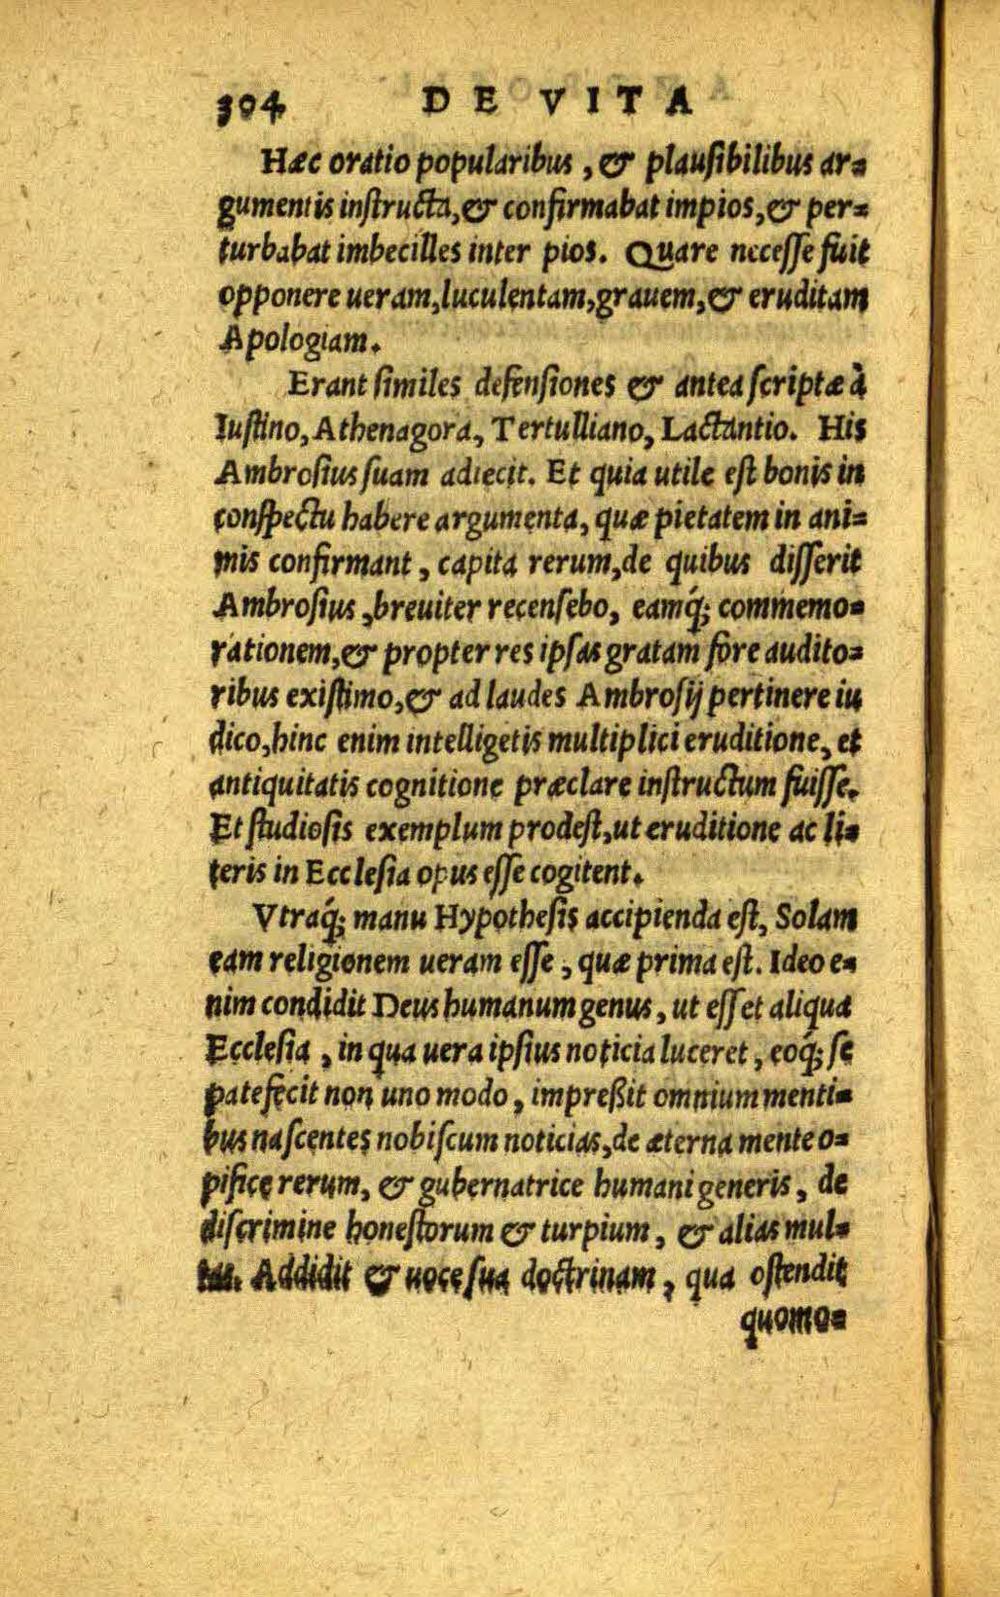 304 DE VITA
Hæc oratio popularibus, & plauſibilibus ar=
gumentis inſtructa, & confirmabat impios, & per=
turbabat imbecilles inter pios. Quare neceſſe fuit
opponere ueram, luculentam, grauem, & eruditam
Apologiam.
Erant ſimiles defenſiones & antea ſcriptæ à
Iuſtino, Athenagora, Tertulliano, Lactantio. His
Ambroſius ſuam adiecit. Et quia utile eſt bonis in
conſpectu habere argumenta, quæ pietatem in ani=
mis confirmant, capita rerum, de quibus diſſerit
Ambroſius, breuiter recenſebo, eamq́; commemo=
rationem, & propter res ipſas gratam fore audito=
ribus exiſtimo, & ad laudes Ambroſij pertinere iu
dico, hinc enim intelligetis multiplici eruditione, et
antiquitatis cognitione præclare inſtructum fuiſſe.
Et ſtudioſis exemplum prodeſt, ut eruditione ac li=
teris in Eccleſia opus eſſe cogitent.
Vtraq́; manu Hypotheſis accipienda eſt, Solam
eam religionem ueram eſſe, quæ prima eſt. Ideo e=
nim condidit Deus humanum genus, ut eſſet aliqua
Eccleſia, in qua uera ipſius noticia luceret, eoq́; ſe
patefecit non uno modo, impreßit omnium menti=
bus naſcentes nobiſcum noticias, de æterna mente o=
pifice rerum, & gubernatrice humani generis, de
diſcrimine honeſtorum & turpium, & alias mul=
tas. Addidit & uoce ſua doctrinam, qua oſtendit
quomo=